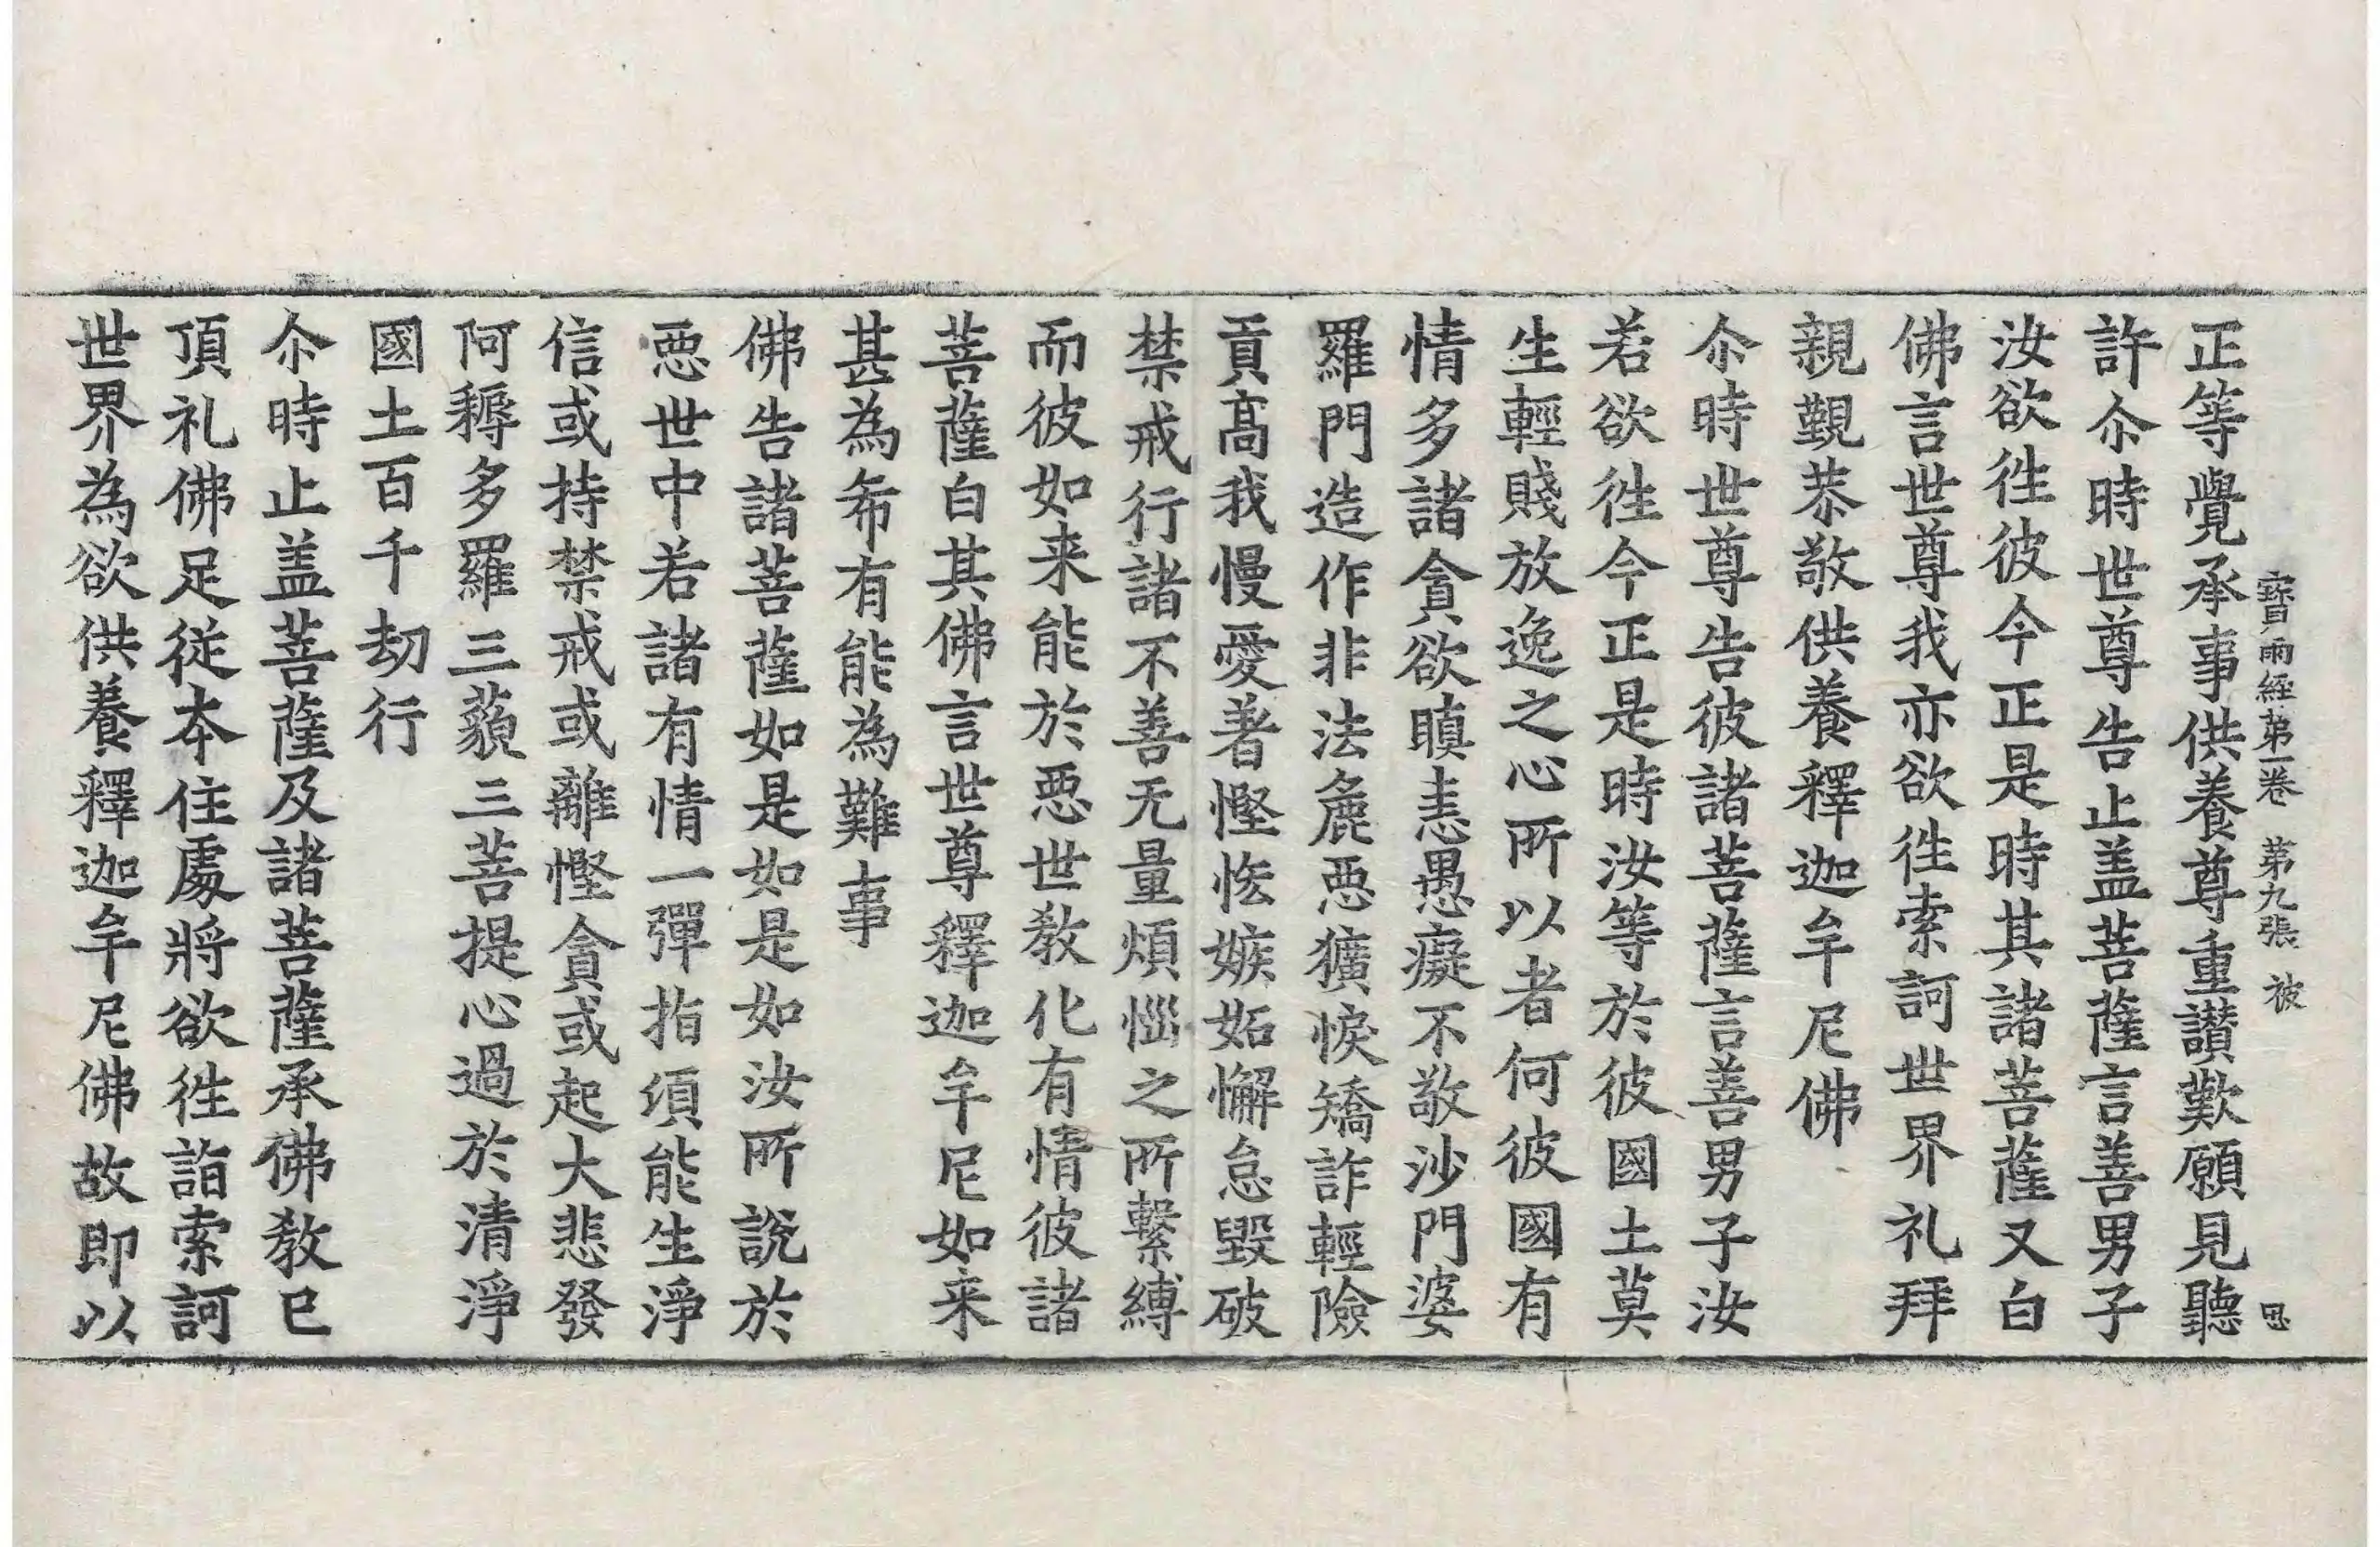 寳雨經第一卷 第九張 彼 思
正等覺承事供養尊重讃歎願見聽
許尒時世尊告止盖菩薩言善男子
汝欲徃彼今正是時其諸菩薩又白
佛言世尊我亦欲徃索訶世界礼拜
親覲恭敬供養釋迦牟尼佛
尒時世尊告彼諸菩薩言善男子汝
若欲徃今正是時汝等於彼國土莫
生輕賤放逸之心所以者何彼國有
情多諸貪欲瞋恚愚癡不敬沙門婆
羅門造作非法麁惡獷悷矯詐輕險
貢高我慢愛著慳悋嫉妬懈怠毀破
禁戒行諸不善无量煩惱之所繫縛
而彼如来能於惡世教化有情彼諸
菩薩白其佛言世尊釋迦牟尼如来
甚為希有能為難事
佛告諸菩薩如是如是如汝所說於
惡世中若諸有情一彈指須能生淨
信或持禁戒或離慳貪或起大悲發
阿耨多羅三藐三菩提心過於清淨
國土百千劫行
尒時止盖菩薩及諸菩薩承佛教已
頂礼佛足従本住處將欲徃詣索訶
世界為欲供養釋迦牟尼佛故即以